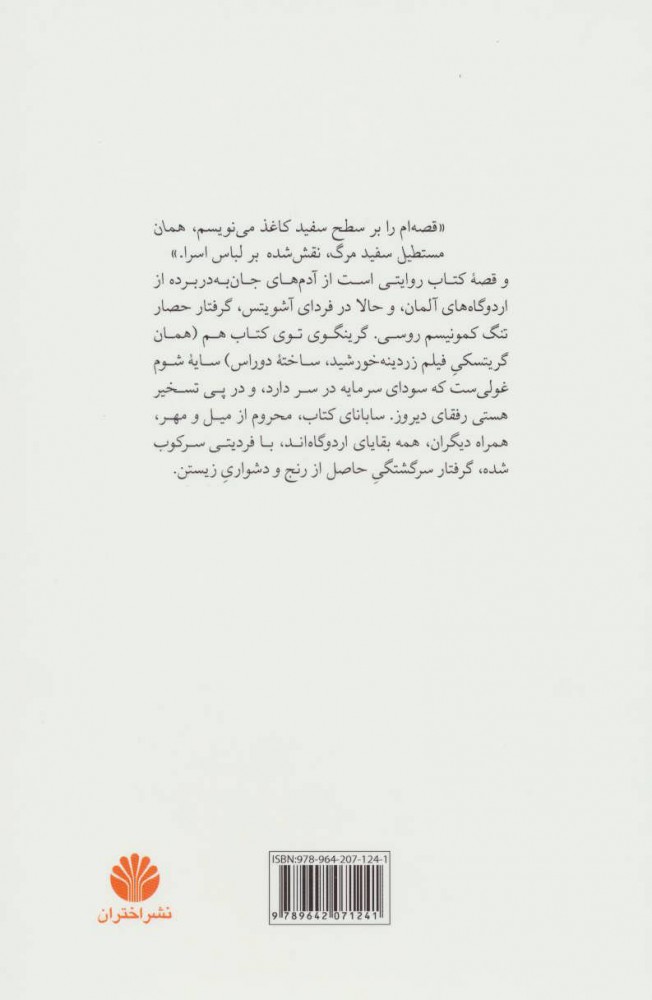 «قصه‌ام را بر سطح سفید کاغذ می‌نویسم، همان
مستطیل سفید مرگ، نقش‌شده بر لباس اسرا.»
و قصهٔ کتاب روایتی است از آدم‌های جان‌به‌دربرده از
اردوگاه‌های آلمان، و حالا در فردای آشویتس، گرفتار حصار
تنگ کمونیسم روسی. گرینگوی توی کتاب هم (همان
گریتسکیِ فیلم زردینه‌خورشید، ساختهٔ دوراس) سایهٔ شوم
غولی‌ست که سودای سرمایه در سر دارد، و در پی تسخیر
هستی رفقای دیروز. سابانای کتاب، محروم از میل و مهر،
همراه دیگران، همه بقایای اردوگاه‌اند، با فردیتی سرکوب
شده، گرفتار سرگشتگیِ حاصل از رنج و دشواریِ زیستن.
ISBN:978-964-207-124-1
9 789642 071241
نشر اختران